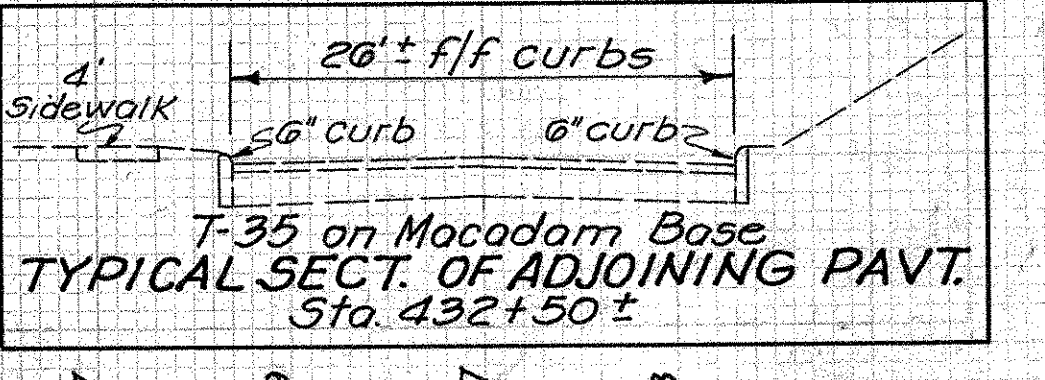 26'± f/f curbs
4'
Sidewalk
6" curb
6" curb
T-35 on Macadam Base
TYPICAL SECT. OF ADJOINING PAVT.
Sta. 432+50 ±